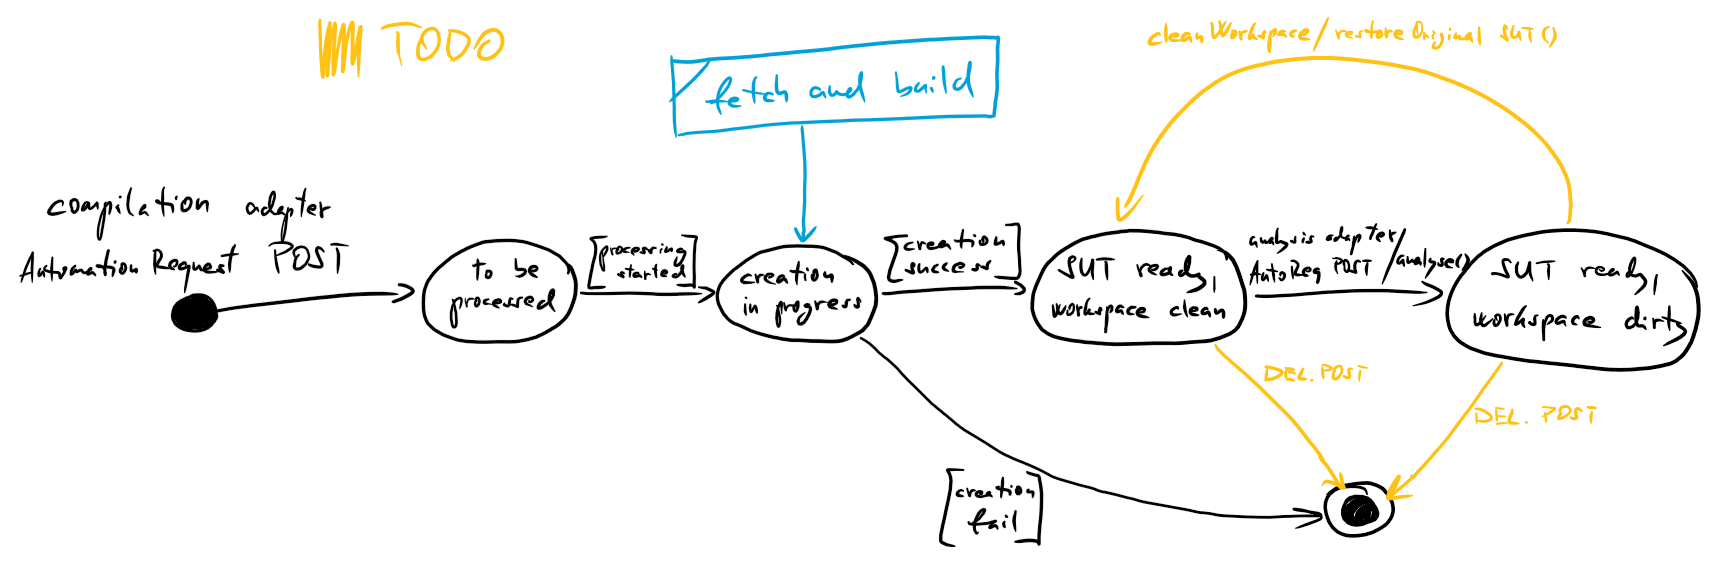 TODO
cleanWorkspace/restoreOriginal SUT()
fetch and build
compilation adapter
Automation Request POST
to be
processed
[processing
started]
creation
in progress
[creation
success]
SUT ready,
workspace clean
analysis adapter/
AutoReq POST /analyse()
SUT ready,
workspace dirty
DEL. POST
DEL. POST
[creation
fail]